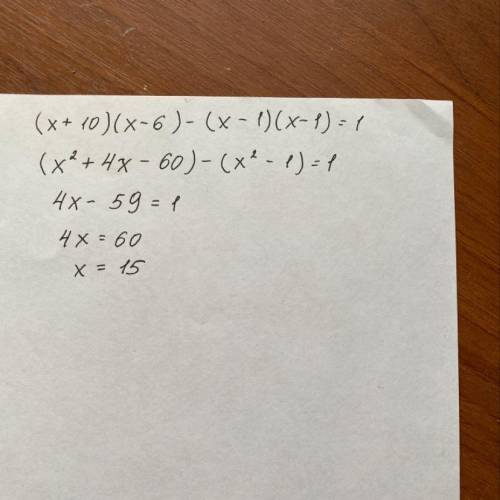 (x + 10)(x - 6) - (x - 1)(x - 1) = 1
(x² + 4x - 60) - (x² - 1) = 1
4x - 59 = 1
4x = 60
x = 15